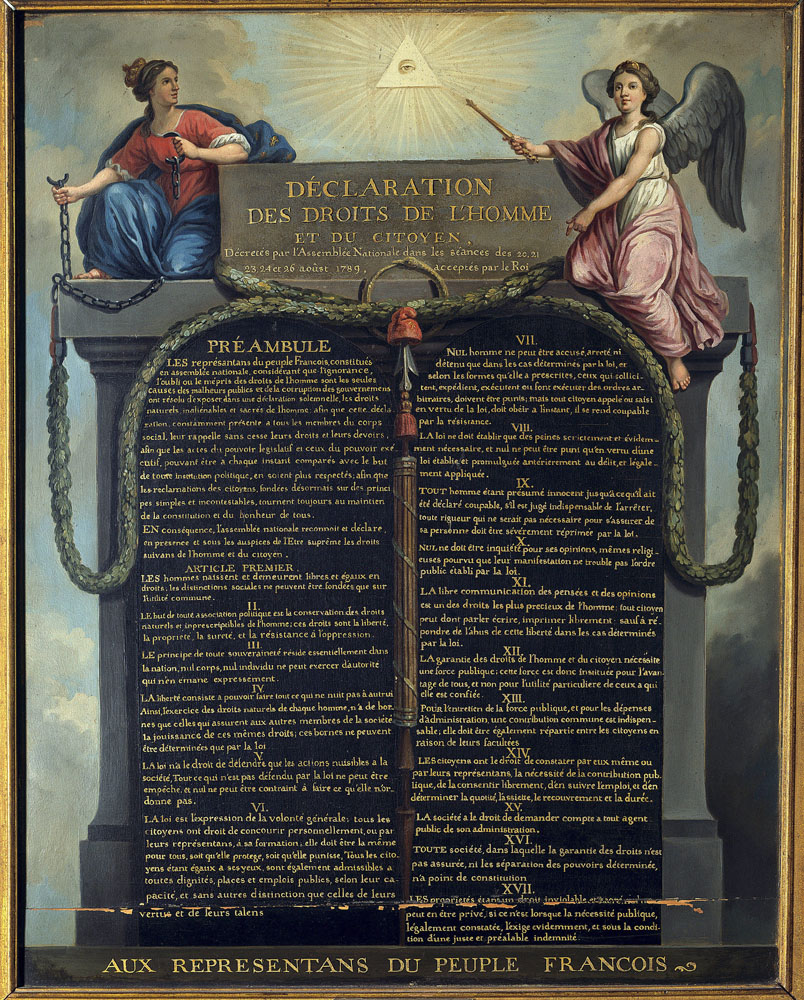 DÉCLARATION
DES DROITS DE L'HOMME
ET DU CITOYEN,
Décretés par l'Assemblée Nationale dans les séances des 20, 21
23, 24 et 26 aoûst 1789, acceptés par le Roi
PRÉAMBULE
LES représantans du peuple Francois, constitués
en assemblée nationale, considérant que l'ignorance,
l'oubli ou le mépris des droits de l'homme sont les seules
causes des malheurs publics et de la corruption des gouvernemens
ont résolu d'exposer dans une déclaration solemnelle, les droits
naturels, inaliénables et sacrés de l'homme; afin que cette décla
ration, constamment présente a tous les membres du corps
social, leur rappelle sans cesse leurs droits et leurs devoirs,
afin que les actes du pouvoir legislatif et ceux du pouvoir exé
cutif, pouvant être à chaque instant comparés avec le but
de toute institution politique, en soient plus respectés; afin que
les reclamations des citoyens, fondées désormais sur des princi
pes simples et incontestables, tournent toujours au maintien
de la constitution et du bonheur de tous.
EN conséquence, l'assemblée nationale reconnoit et déclare,
en presence et sous les auspices de l'Etre suprême les droits
suivans de l'homme et du citoyen.
ARTICLE PREMIER.
LES hommes naissent et demeurent libres et égaux en
droits; les distinctions sociales ne peuvent être fondées que sur
l'utilité commune.
II.
LE but de toute association politique est la conservation des droits
naturels et inprescriptibles de l'homme; ces droits sont la liberté,
la propriété, la sureté, et la résistance à l'oppression.
III.
LE principe de toute souveraineté réside essentiellement dans
la nation, nul corps, nul individu ne peut exercer d'autorité
qui n'en émane expressément.
IV.
LA liberté consiste a pouvoir faire tout ce qui ne nuit pas à autrui
Ainsi, l'exercice des droits naturels de chaque homme, n'a de bor-
nes que celles qui assurent aux autres membres de la société
la jouissance de ces mêmes droits; ces bornes ne peuvent
être déterminées que par la loi
V.
LA loi n'a le droit de défendre que les actions nuisibles a la
société, Tout ce qui n'est pas défendu par la loi ne peut être
empêché, et nul ne peut être contraint à faire ce qu'elle n'or-
donne pas.
VI.
LA loi est l'expression de la volonté générale; tous les
citoyens ont droit de concourir personnellement, ou par
leurs représentans, à sa formation; elle doit être la même
pour tous, soit qu'elle protege, soit qu'elle punisse, Tous les cito-
yens étant égaux a ses yeux, sont également admissibles a
toutes dignités, places et emplois publics, selon leur ca-
pacité, et sans autres distinction que celles de leurs
vertus et de leurs talens
VII.
NUL homme ne peut être accusé, arreté, ni
détenu que dans les cas déterminés par la loi, et
selon les formes qu'elle a prescrites, ceux qui sollici-
tent, expédient, exécutent ou font exécuter des ordres ar-
bitraires, doivent être punis; mais tout citoyen appelé ou saisi
en vertu de la loi, doit obéir a l'instant, il se rend coupable
par la résistance.
VIII.
LA loi ne doit établir que des peines strictement et évidem-
ment nécessaire, et nul ne peut être puni qu'en vertu d'une
loi établie et promulguée antérierement au délit, et légale-
ment appliquée.
IX.
TOUT homme étant présumé innocent jusqu'a ce qu'il ait
été déclaré coupable, s'il est jugé indispensable de l'arrêter,
toute rigueur qui ne serait pas nécessaire pour s'assurer de
sa personne doit être sévérement réprimée par la loi.
X.
NUL ne doit être inquiété pour ses opinions, mêmes religi-
euses pourvu que leur manifestation ne trouble pas l'ordre
public établi par la loi.
XI.
LA libre communication des pensées et des opinions
est un des droits les plus precieux de l'homme; tout citoyen
peut dont parler écrire, imprimer librement: sauf à ré-
pondre de l'abus de cette liberté dans les cas determinés
par la loi.
XII.
LA garantie des droits de l'homme et du citoyen nécessite
une force publique; cette force est donc instituée pour l'avan-
tage de tous, et non pour l'utilité particuliere de ceux a qui
elle est confiée.
XIII.
POUR l'entretien de la force publique, et pour les dépenses
d'administration, une contribution commune est indispen-
sable; elle doit être également répartie entre les citoyens en
raison de leurs facultées
XIV.
LES citoyens ont le droit de constater par eux même ou
par leurs représentans, la nécessité de la contribution pub-
lique, de la consentir librement, d'en suivre l'emploi, et d'en
déterminer la quotité, l'assiette, le recouvrement et la durée.
XV.
LA société a le droit de demander compte a tout agent
public de son administration.
XVI.
TOUTE société, dans laquelle la garantie des droits n'est
pas assurée, ni les séparation des pouvoirs déterminée,
n'a point de constitution
XVII.
LES propriétés étant un droit inviolable et sacré, nul ne
peut en être privé, si ce n'est lorsque la nécessité publique,
légalement constatée, l'exige evidemment, et sous la condi-
tion d'une juste et préalable indemnité.
AUX REPRESENTANS DU PEUPLE FRANCOIS